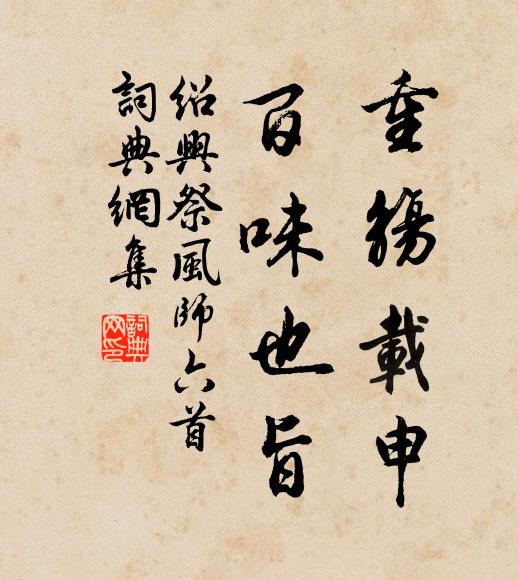 重觴載申
百味也旨
紹興祭風師六首
詞典網集
詞典網印